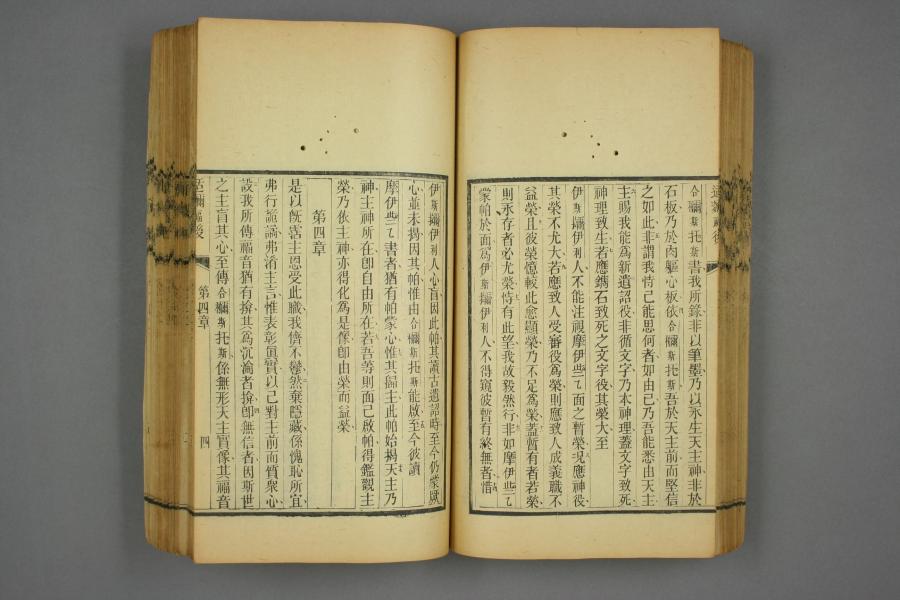 合爾斯托斯書我所錄非以筆墨乃以永生天主神非於
石板乃於肉軀心板依合爾斯托斯吾於天主前而堅信
之如此非謂我恃己能思何者如由己乃吾能悉由天主
主賜我能爲新遺詔役非循文字乃本神理蓋文字致死
神理致生若應鐫石致死之文字役其榮大至
伊斯攝伊利人不能注視摩伊些乙面之暫榮況應神役
其榮不尤大若應致人受審役爲榮則應致人成義職不
益榮且彼榮憶較此愈顯榮乃不足爲榮蓋暫有者若榮
則永存者必尤榮恃有此望我故毅然行非如摩伊些乙
蒙帕於面爲伊斯攝伊利人不得窺彼暫有終無者惜
伊斯攝伊利人心盲因此帕其讀古遺詔時至今仍蒙厥
心並未揭因其帕惟由合爾斯托斯能啟至今彼讀
摩伊些乙書者猶有帕蒙心惟其歸主此帕始揭天主乃
神主神所在卽自由所在若吾等則面已啟帕得鑑觀主
榮乃依主神亦得化爲是像卽由榮而益榮
第四章
是以旣霑主恩受此職我儕不鬱然棄隱藏係愧恥所宜
弗行詭譎弗淆主言惟表彰眞實以己對主前而質衆心
設我所傳福音猶有揜其爲沉淪者揜卽無信者因斯世
之主盲其心至傳合爾斯托斯係無形天主肖像其福音
第四章
四